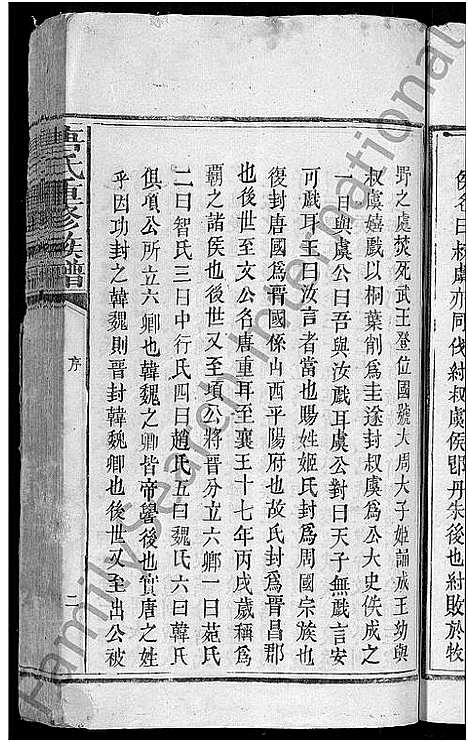 侯名曰叔虞亦同伐紂叔虞侯卽丹朱後也紂敗於牧
野之處焚死武王登位國號大周大子姬誦成王幼與
叔虞嬉戲以桐葉削爲圭遂封叔虞爲公大史佚成之
一日與虞公曰吾與汝戲耳虞公對曰天子無戲言安
可戲耳王曰汝言者當也賜姓姬氏封爲周國宗族也
復封唐國爲侯山西平陽府也故氏封爲晋昌郡
也後世至文公名唐重耳至襄王十七年丙戌歲稱爲
覇之諸侯也後世又至項公將晋分立六卿一曰范氏
二曰智氏三曰中行氏四曰趙氏五曰魏氏六曰韓氏
俱項公所立六卿也韓魏之卿皆帝嚳後也實唐之姓
乎因功封之韓魏則晋封韓魏卿也後世又至出公被
唐氏重修族譜
序
二
FamilySearch International